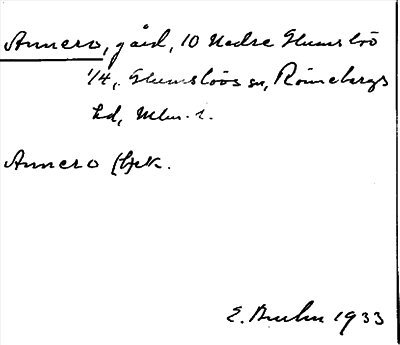 Annero, gård, 10 Nedre Glumslöv
1/4, Glumslövs sn, Rönnebergs
hd, Mlm. l.
Annero
E. 1933